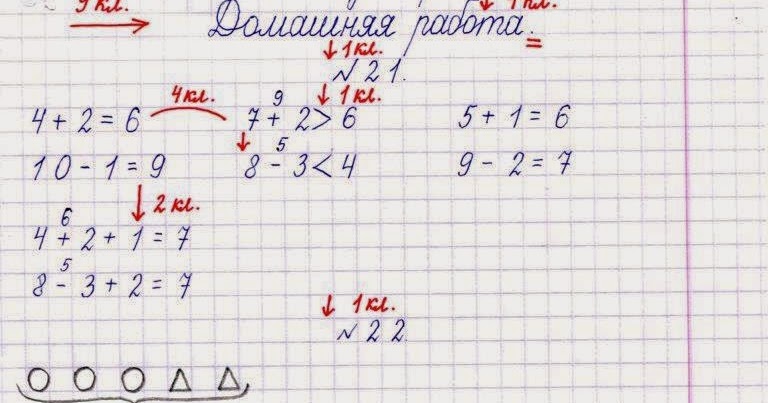 9 кл. 1 кл.
Домашняя работа.
1 кл.
№ 21.
4 кл. 9 1 кл.
4 + 2 = 6 7 + 2 > 6 5 + 1 = 6
5
10 - 1 = 9 8 - 3 < 4 9 - 2 = 7
2 кл.
6
4 + 2 + 1 = 7
5
8 - 3 + 2 = 7
1 кл.
№ 22.